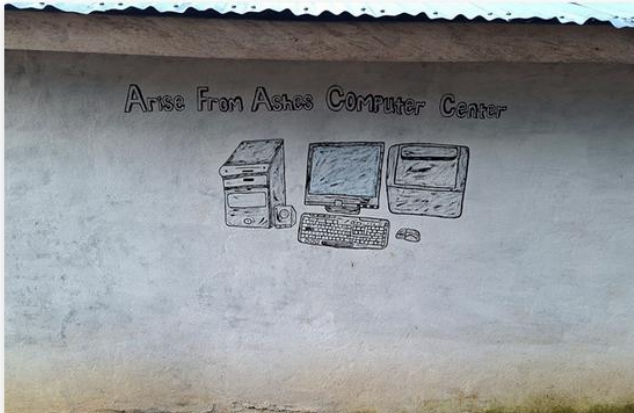 Arise From Ashes Computer Center